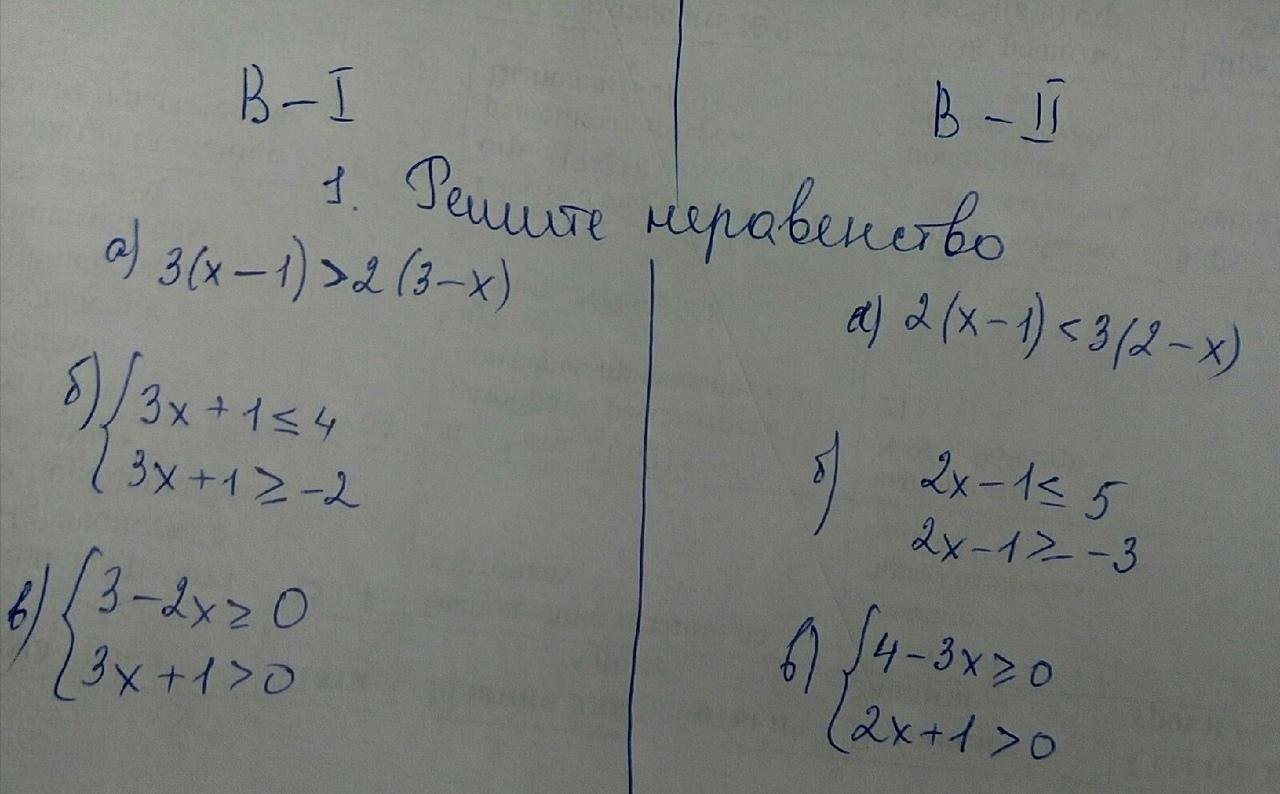 В – I
В – II
1. Решите неравенство
а) 3(x – 1) > 2 (3 – x)
б) { 3x + 1 ≤ 4
3x + 1 ≥ -2
в) { 3 – 2x ≥ 0
3x + 1 > 0
а) 2(x – 1) < 3(2 – x)
б) 2x – 1 ≤ 5
2x – 1 ≥ -3
в) { 4 – 3x ≥ 0
2x + 1 > 0